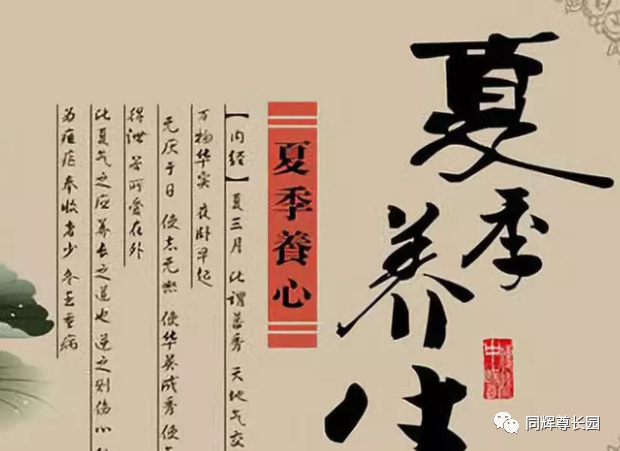 夏季养生
夏季養心
【内经】夏三月 此谓蕃秀 天地气交
万物华实 夜卧早起
无厌于日 使志无怒 使华英成秀 使
得泄 若所爱在外
此夏气之应 养长之道也 逆之则伤心
为痎疟 奉收者少 冬至重病
同辉尊长园